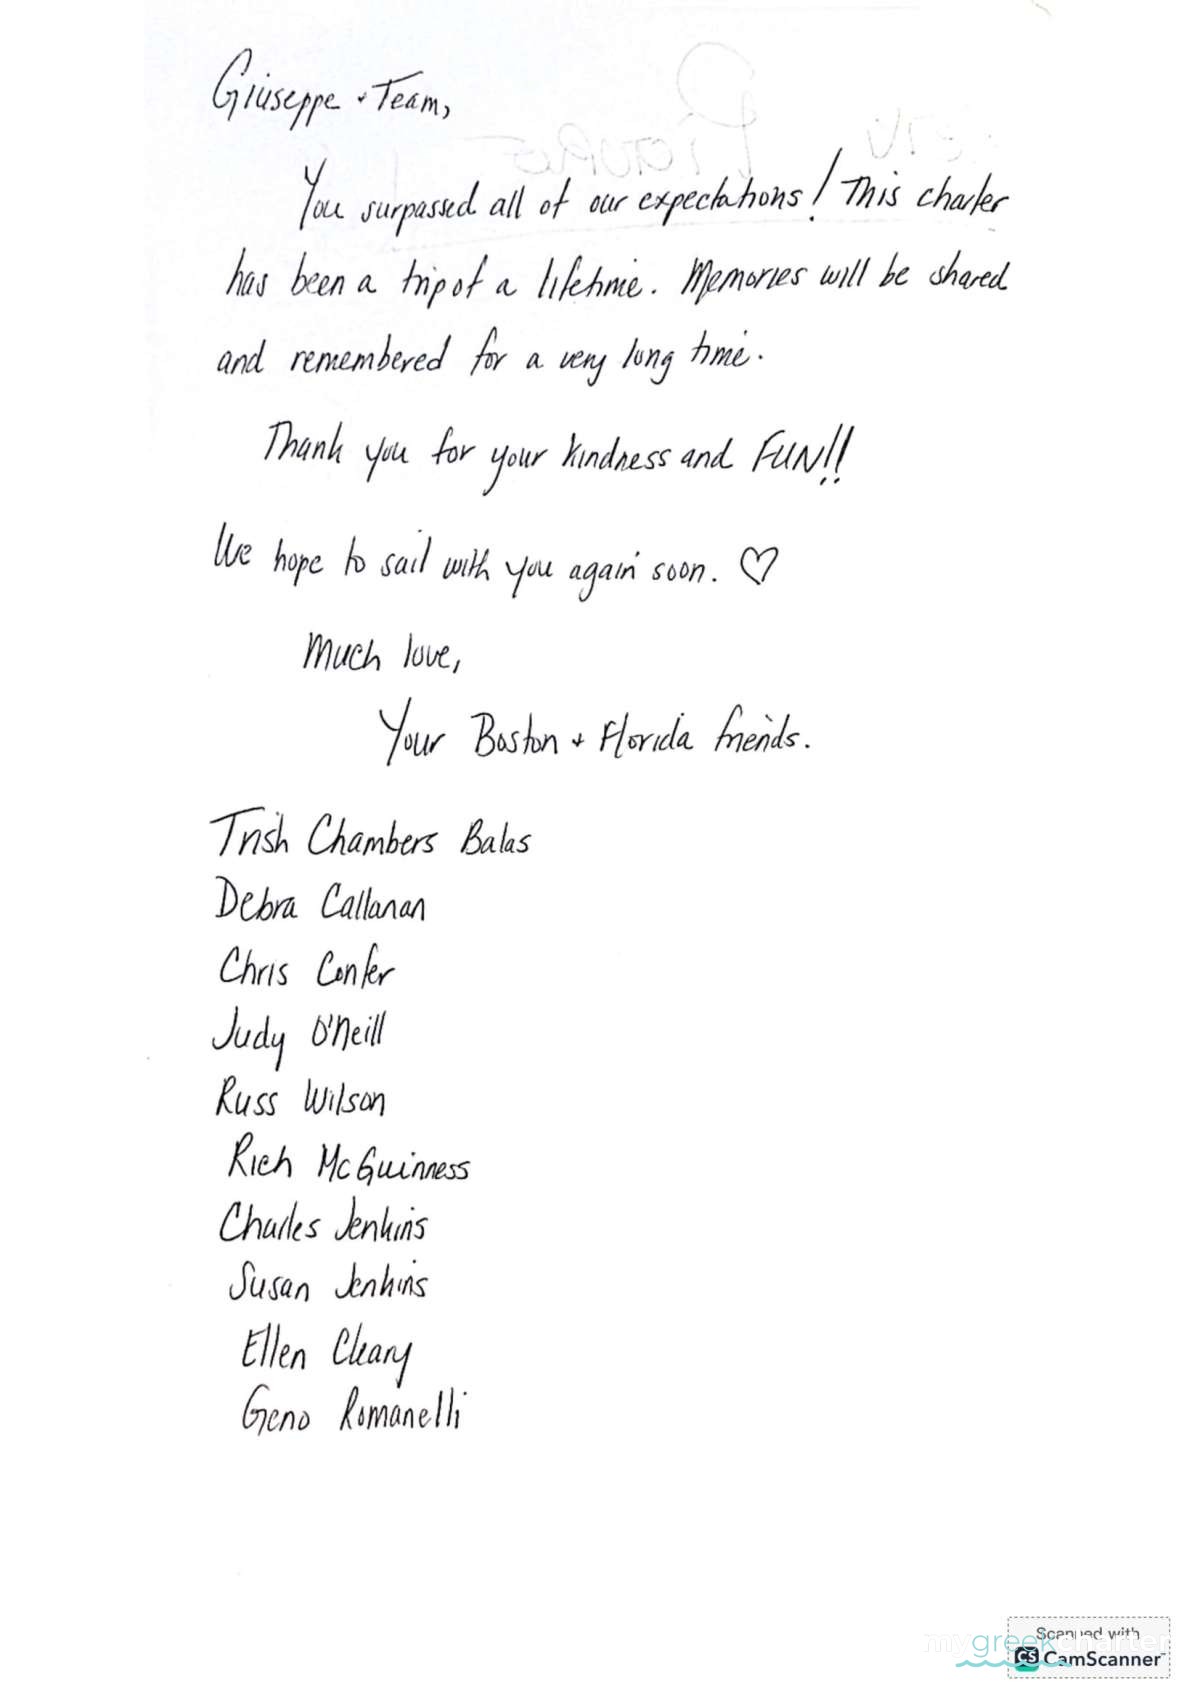 Giuseppe + Team,
You surpassed all of our expectations! This charter
has been a trip of a lifetime. Memories will be shared
and remembered for a very long time.
Thank you for your kindness and FUN!!
We hope to sail with you again soon. ♡
Much love,
Your Boston + Florida friends.
Trish Chambers Balas
Debra Callanan
Chris Confer
Judy O'Neill
Russ Wilson
Rich McGuinness
Charles Jenkins
Susan Jenkins
Ellen Cleary
Geno Romanelli
Scanned with
mygreekcharter
CS CamScanner™